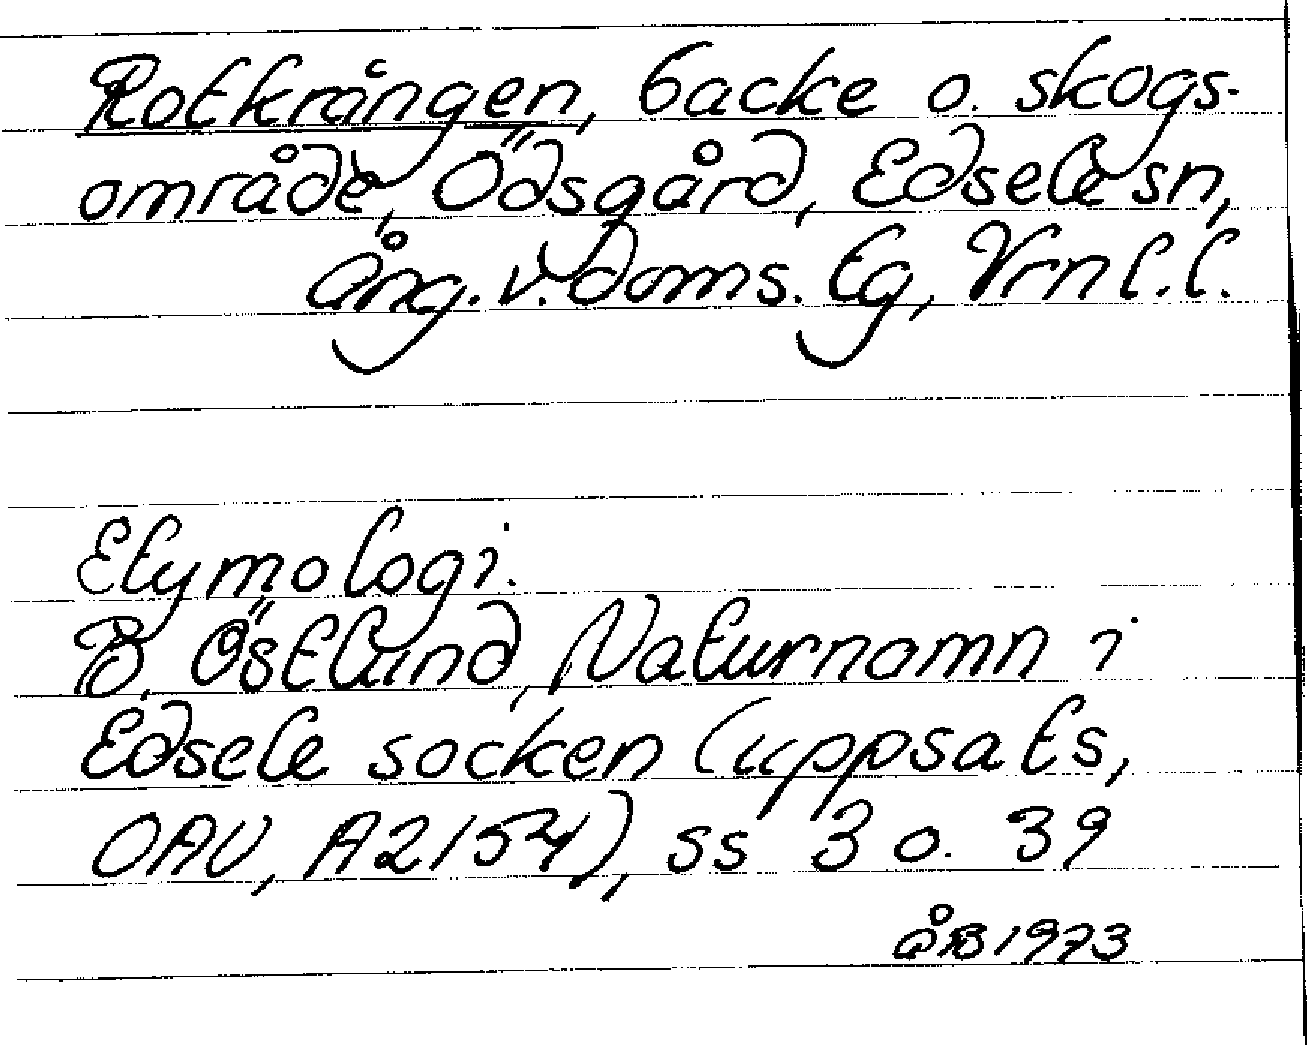 Rotkrången, backe o. skogs-
område, Ödsgård, Edsele sn,
Ång. v. Doms. tg, Vrnl.l.
Etymologi.
B. Östlund, Naturnamn i
Edsele socken (uppsats,
OAU, A2154), ss 3 o. 39
ÅB 1973